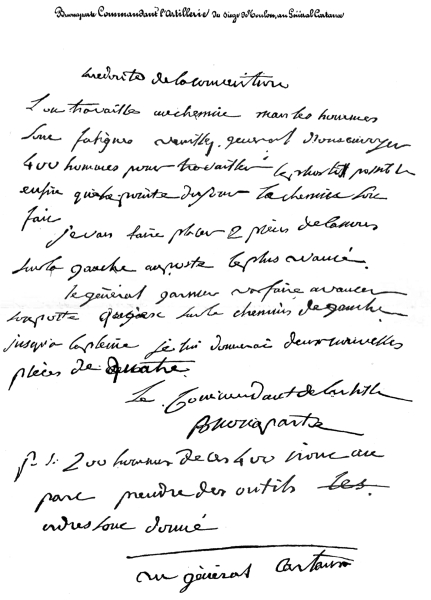 Buonaparte Commandant l'Artillerie du siège de Toulon, au Général Cartaux
de la convention
L'on travaille au chemin mais les hommes
sont fatigués veuillez, general, nous envoyer
400 hommes pour travailler le plutot possible
enfin qu'a la pointe du jour le chemin soit
fait
je vais faire placer 2 pièces de
sur la gauche au poste le plus avancé.
le général garnier va faire avancer
sur le chemin de gauche
jusqu'a la plaine je lui donnerai deux nouvelles
pièces de quatre.
Le Commandant de l'artill
Buonaparte
p. s. 200 hommes de ces 400 iront au
parc prendre des outils les
ordres sont donné
au général Cartaux